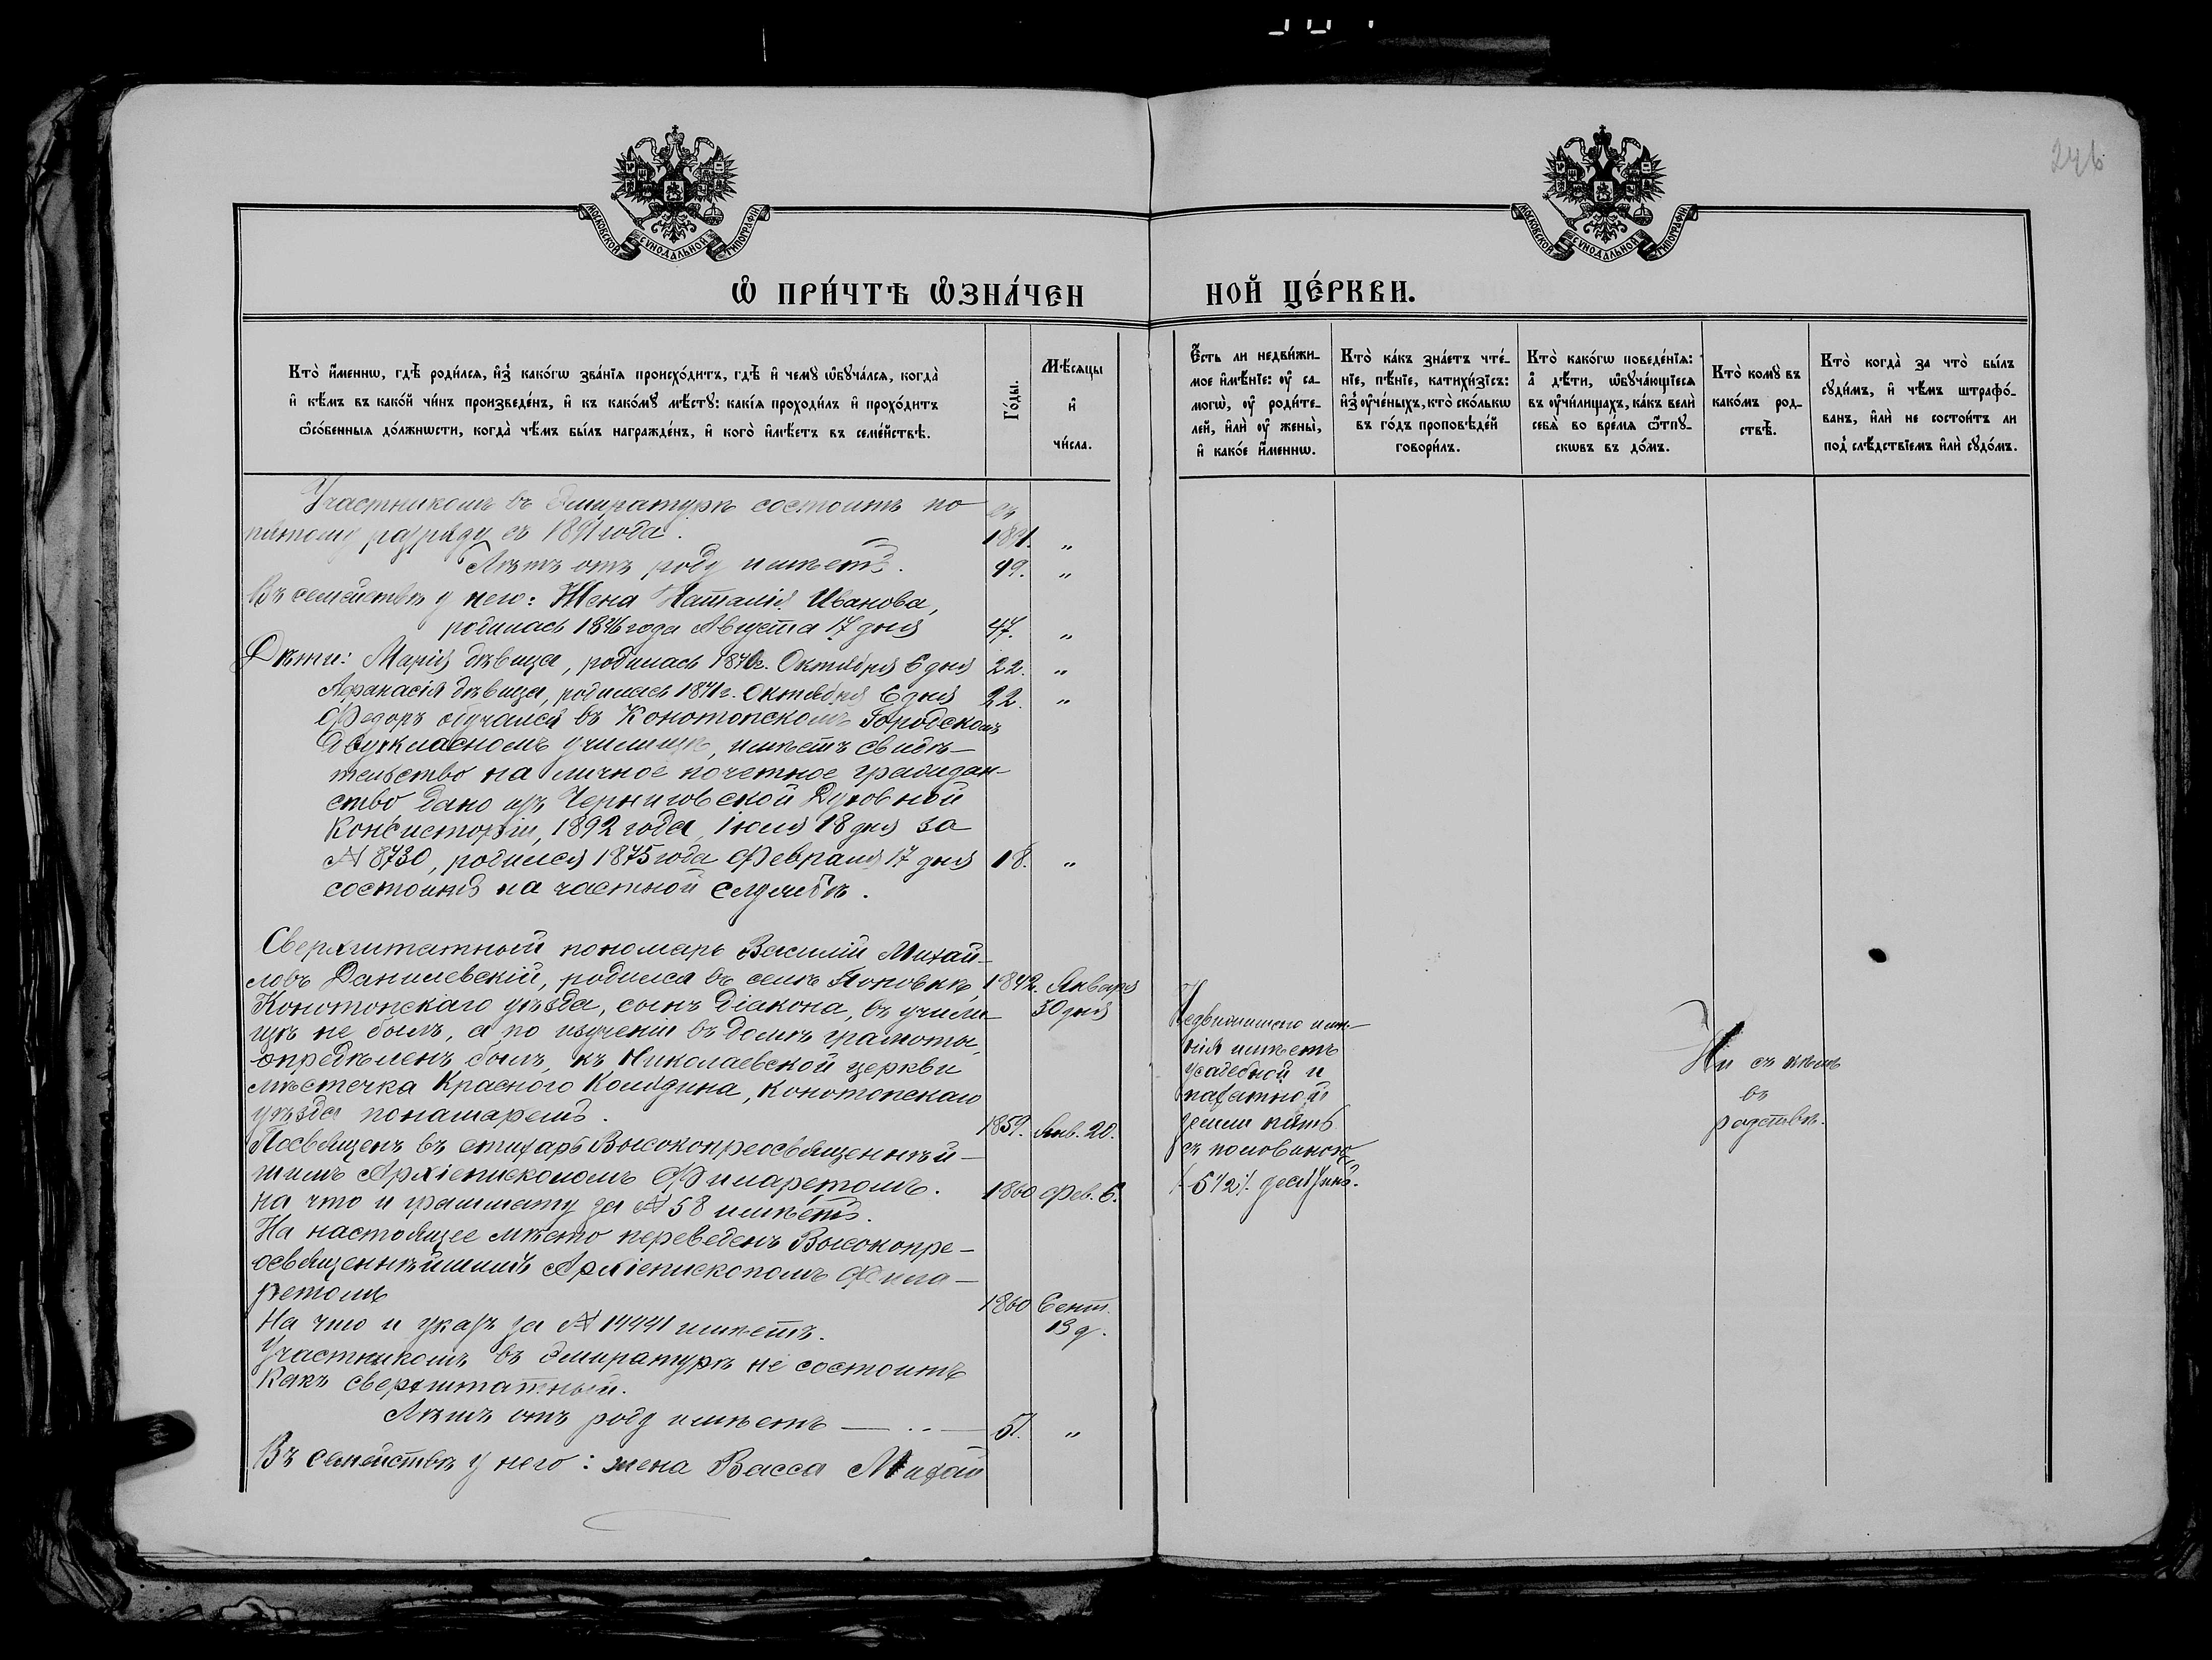 246
МОСКОВСКОЙ СѴНОДАЛЬНОЙ ТИПОГРАФІИ
МОСКОВСКОЙ СѴНОДАЛЬНОЙ ТИПОГРАФІИ
Ѽ ПРИ́ЧТѢ Ѽ҆ЗНА́ЧЕН
НОЙ ЦЕ́РКВИ.
Кто̀ и҆́менно, гдѣ̀ роди́лсѧ, и҆з̾ како́гѡ зва́нїѧ происхо́дитъ, гдѣ̀ и҆ чемꙋ̀ ѡ҆бꙋча́лсѧ, когда̀
и҆ кѣ́мъ въ како́й чи́нъ произведе́нъ, и҆ къ како́мꙋ мѣ́стꙋ: какі́ѧ проходи́лъ и҆ прохо́дитъ
ѻ҆со́бенныѧ до́лжнѡсти, когда̀ чѣ́мъ бы́лъ награжде́нъ, и҆ кого̀ и҆мѣ́етъ въ семе́йствѣ.
Го́ды.
Мѣ́сѧцы
и҆
чи́сла.
Є҆́сть ли недви́жи-
мое и҆мѣ́нїе: ᲂу҆ са-
могѡ̀, ᲂу҆ роди́те-
лей, и҆лѝ ᲂу҆ жены̀,
и҆ како́е и҆́менно.
Кто̀ ка́къ зна́етъ чте́-
нїе, пѣ́нїе, катихи́зїсъ:
и҆з̾ ᲂу҆че́ныхъ, кто̀ ско́лькѡ
въ го́дъ проповѣ́дей
говори́лъ.
Кто̀ како́гѡ поведе́нїѧ:
а҆ дѣ́ти, ѡ҆бꙋча́ющїесѧ
въ ᲂу҆чи́лищахъ, ка́къ велѝ
себѧ̀ во вре́мѧ ѿпꙋ-
скѡвъ въ до́мъ.
Кто̀ комꙋ̀ въ
како́мъ род-
ствѣ̀.
Кто̀ когда̀ за что̀ бы́лъ
сꙋди́мъ, и҆ чѣ́мъ штрафо́-
ванъ, и҆лѝ не состои́тъ ли
под̾ слѣ́дствїемъ и҆лѝ сꙋдо́мъ.
Участникомъ въ Эмиратурѣ состоитъ по съ
пятому разряду съ 1891 года. 1891. „
Лѣтъ отъ роду имѣетъ. 49. „
Въ семействѣ у него: Жена Наталія Иванова,
родилась 1846 года Августа 17 дня 47. „
Дѣти: Марія дѣвица, родилась 1871 г. Октября 6 дня 22. „
Афанасія дѣвица, родилась 1871 г. Октября 6 дня 22. „
Федоръ обучался въ Конотопскомъ Городскомъ
двухкласномъ училищѣ, имѣетъ свидѣ-
тельство на личное почетное граждан-
ство дано изъ Черниговской Духовной
Консисторіи, 1892 года, Іюля 18 дня за
№ 8730, родился 1875 года Февраля 17 дня 18. „
состоитъ на частной службѣ.
Сверхштатный пономарь Василій Михай-
ловъ Данилевскій, родился въ селѣ Поповкѣ, 1842. Января
Конотопскаго уѣзда, сынъ Діакона, въ учили- 30 дня
щѣ не былъ, а по изученіи въ домѣ грамоты,
опредѣленъ былъ, къ Николаевской церкви
мѣстечка Красного Колядина, Конотопскаго
уѣзда понамаремъ. 1859. Янв. 20.
Посвященъ въ стихарь Высокопреосвященнѣй-
шимъ Архіепископомъ Филаретомъ. 1860 Фев. 6.
на что и граммату за № 58 имѣетъ.
На настоящее мѣсто переведенъ Высокопре-
освященнѣйшимъ Архіепископомъ Фила-
ретомъ 1860 Сент.
На что и указъ за № 14441 имѣетъ. 19 д.
Участникомъ въ Эмиратурѣ не состоитъ
какъ сверхштатный.
Лѣтъ отъ роду имѣетъ 51. „
Въ семействѣ у него: жена Васса Михай
Недвижимого имѣ-
нія имѣетъ
усадебной и
пахатной
земли пять
съ половиною
/ 5 1/2 /. десятинъ.
Ни съ кѣмъ
въ
родствѣ.